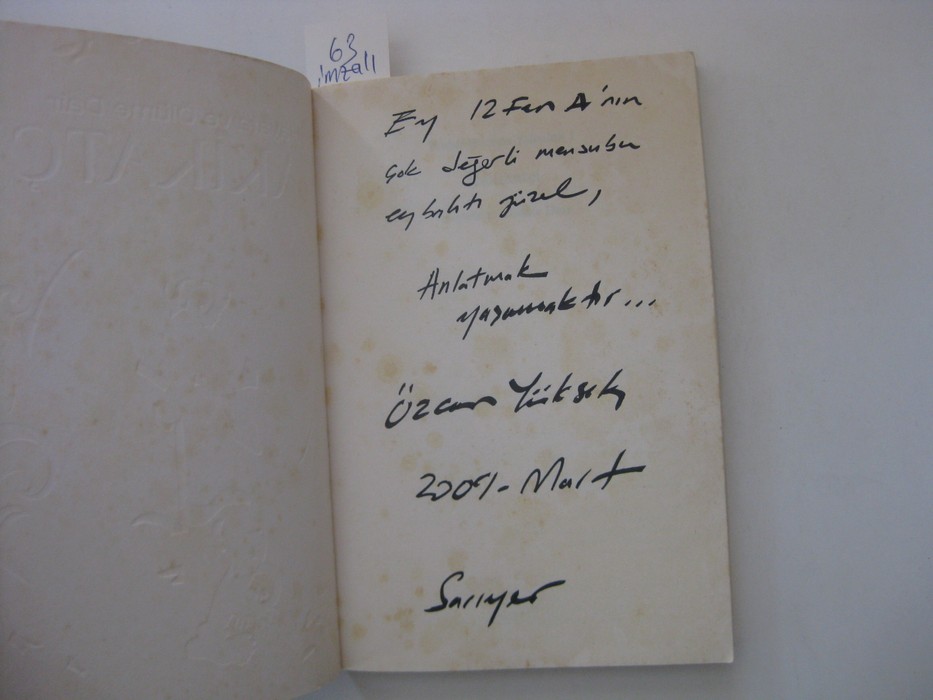 63
imzalı
Ey 12 Fen A'nın
çok değerli mensubu
ey güzel,
Anlatmak
yaşamaktır...
Özcan Yüksek
Mart
Sarıyer